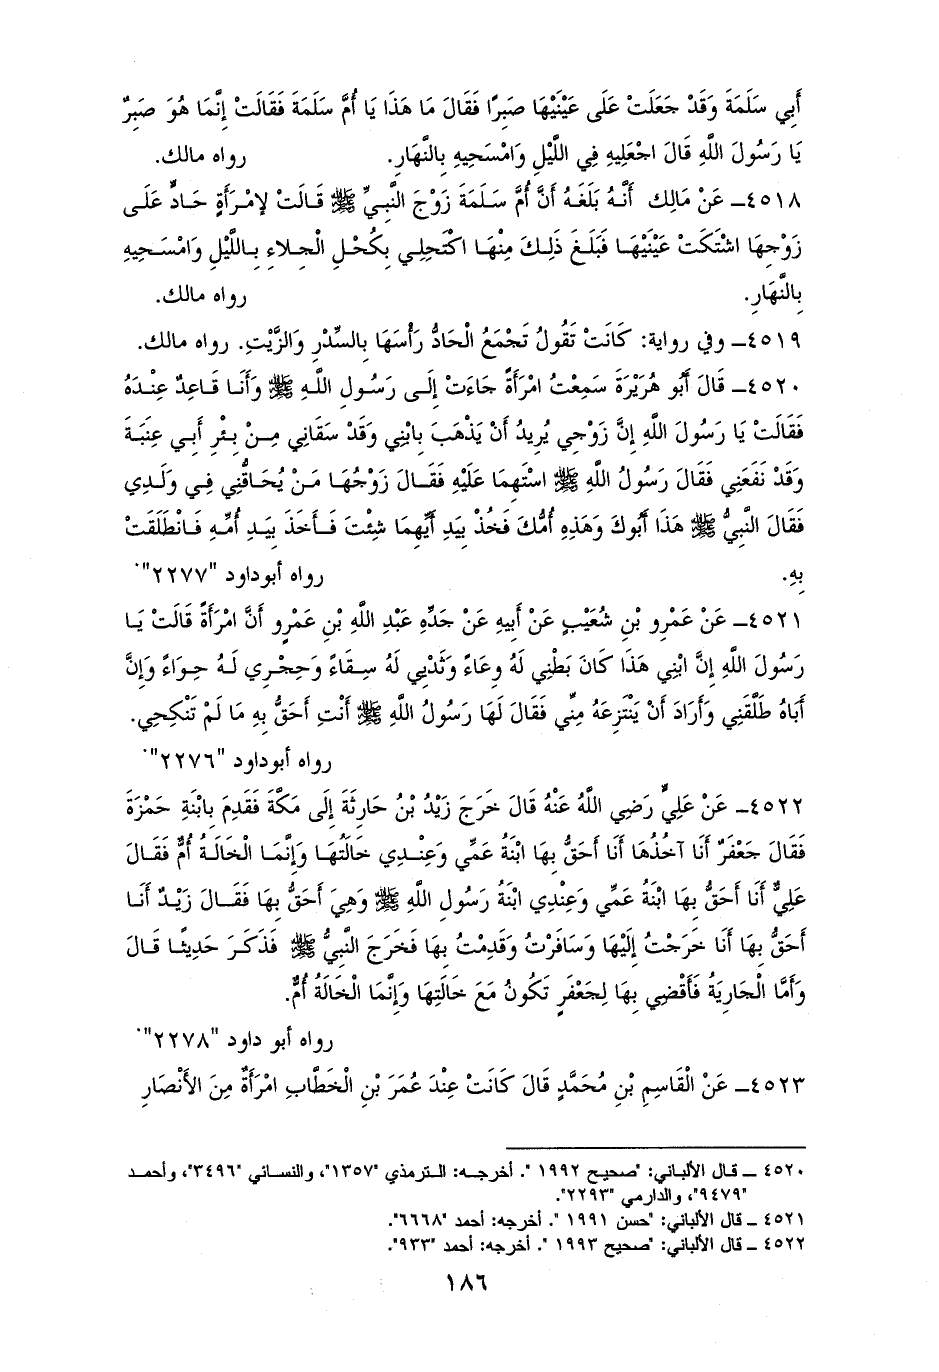 أَبِي سَلَمَةَ وَقَدْ جَعَلَتْ عَلَى عَيْنَيْهَا صَبِرًا فَقَالَ مَا هَذَا يَا أُمَّ سَلَمَةَ فَقَالَتْ إِنَّمَا هُوَ صَبِرٌ
يَا رَسُولَ اللَّهِ قَالَ اجْعَلِيهِ فِي اللَّيْلِ وَامْسَحِيهِ بِالنَّهَارِ. رواه مالك.
٤٥١٨ــ عَنْ مَالِك أَنَّهُ بَلَغَهُ أَنَّ أُمَّ سَلَمَةَ زَوْجَ النَّبِيِّ ﷺ قَالَتْ لِامْرَأَةٍ حَادٍّ عَلَى
زَوْجِهَا اشْتَكَتْ عَيْنَيْهَا فَبَلَغَ ذَلِكَ مِنْهَا اكْتَحِلِي بِكُحْلِ الْجِلَاءِ بِاللَّيْلِ وَامْسَحِيهِ
بِالنَّهَارِ. رواه مالك.
٤٥١٩ــ وفي رواية: كَانَتْ تَقُولُ تَجْمَعُ الْحَادُّ رَأْسَهَا بِالسِّدْرِ وَالزَّيْتِ. رواه مالك.
٤٥٢٠ــ قَالَ أَبُو هُرَيْرَةَ سَمِعْتُ امْرَأَةً جَاءَتْ إِلَى رَسُولِ اللَّهِ ﷺ وَأَنَا قَاعِدٌ عِنْدَهُ
فَقَالَتْ يَا رَسُولَ اللَّهِ إِنَّ زَوْجِي يُرِيدُ أَنْ يَذْهَبَ بِابْنِي وَقَدْ سَقَانِي مِنْ بِئْرِ أَبِي عِنَبَةَ
وَقَدْ نَفَعَنِي فَقَالَ رَسُولُ اللَّهِ ﷺ اسْتَهِمَا عَلَيْهِ فَقَالَ زَوْجُهَا مَنْ يُحَاقُّنِي فِي وَلَدِي
فَقَالَ النَّبِيُّ ﷺ هَذَا أَبُوكَ وَهَذِهِ أُمُّكَ فَخُذْ بِيَدِ أَيِّهِمَا شِئْتَ فَأَخَذَ بِيَدِ أُمِّهِ فَانْطَلَقَتْ
بِهِ. رواه أبوداود "٢٢٧٧".
٤٥٢١ــ عَنْ عَمْرِو بْنِ شُعَيْبٍ عَنْ أَبِيهِ عَنْ جَدِّهِ عَبْدِ اللَّهِ بْنِ عَمْرٍو أَنَّ امْرَأَةً قَالَتْ يَا
رَسُولَ اللَّهِ إِنَّ ابْنِي هَذَا كَانَ بَطْنِي لَهُ وِعَاءً وَثَدْيِي لَهُ سِقَاءً وَحِجْرِي لَهُ حِوَاءً وَإِنَّ
أَبَاهُ طَلَّقَنِي وَأَرَادَ أَنْ يَنْتَزِعَهُ مِنِّي فَقَالَ لَهَا رَسُولُ اللَّهِ ﷺ أَنْتِ أَحَقُّ بِهِ مَا لَمْ تَنْكِحِي.
رواه أبوداود "٢٢٧٦".
٤٥٢٢ــ عَنْ عَلِيٍّ رَضِي اللَّهُ عَنْهُ قَالَ خَرَجَ زَيْدُ بْنُ حَارِثَةَ إِلَى مَكَّةَ فَقَدِمَ بِابْنَةِ حَمْزَةَ
فَقَالَ جَعْفَرٌ أَنَا آخُذُهَا أَنَا أَحَقُّ بِهَا ابْنَةُ عَمِّي وَعِنْدِي خَالَتُهَا وَإِنَّمَا الْخَالَةُ أُمٌّ فَقَالَ
عَلِيٌّ أَنَا أَحَقُّ بِهَا ابْنَةُ عَمِّي وَعِنْدِي ابْنَةُ رَسُولِ اللَّهِ ﷺ وَهِيَ أَحَقُّ بِهَا فَقَالَ زَيْدٌ أَنَا
أَحَقُّ بِهَا أَنَا خَرَجْتُ إِلَيْهَا وَسَافَرْتُ وَقَدِمْتُ بِهَا فَخَرَجَ النَّبِيُّ ﷺ فَذَكَرَ حَدِيثًا قَالَ
وَأَمَّا الْجَارِيَةُ فَأَقْضِي بِهَا لِجَعْفَرٍ تَكُونُ مَعَ خَالَتِهَا وَإِنَّمَا الْخَالَةُ أُمٌّ.
رواه أبو داود "٢٢٧٨".
٤٥٢٣ــ عَنْ الْقَاسِمِ بْنِ مُحَمَّدٍ قَالَ كَانَتْ عِنْدَ عُمَرَ بْنِ الْخَطَّابِ امْرَأَةٌ مِنَ الْأَنْصَارِ
٤٥٢٠ ــ قال الألباني: "صحيح ١٩٩٢ ". أخرجه: الترمذي "١٣٥٧"، والنسائي "٣٤٩٦"، وأحمد
"٩٤٧٩"، والدارمي "٢٢٩٣".
٤٥٢١ ــ قال الألباني: "حسن ١٩٩١ ". أخرجه: أحمد "٦٦٦٨".
٤٥٢٢ ــ قال الألباني: "صحيح ١٩٩٣ ". أخرجه: أحمد "٩٣٣".
١٨٦